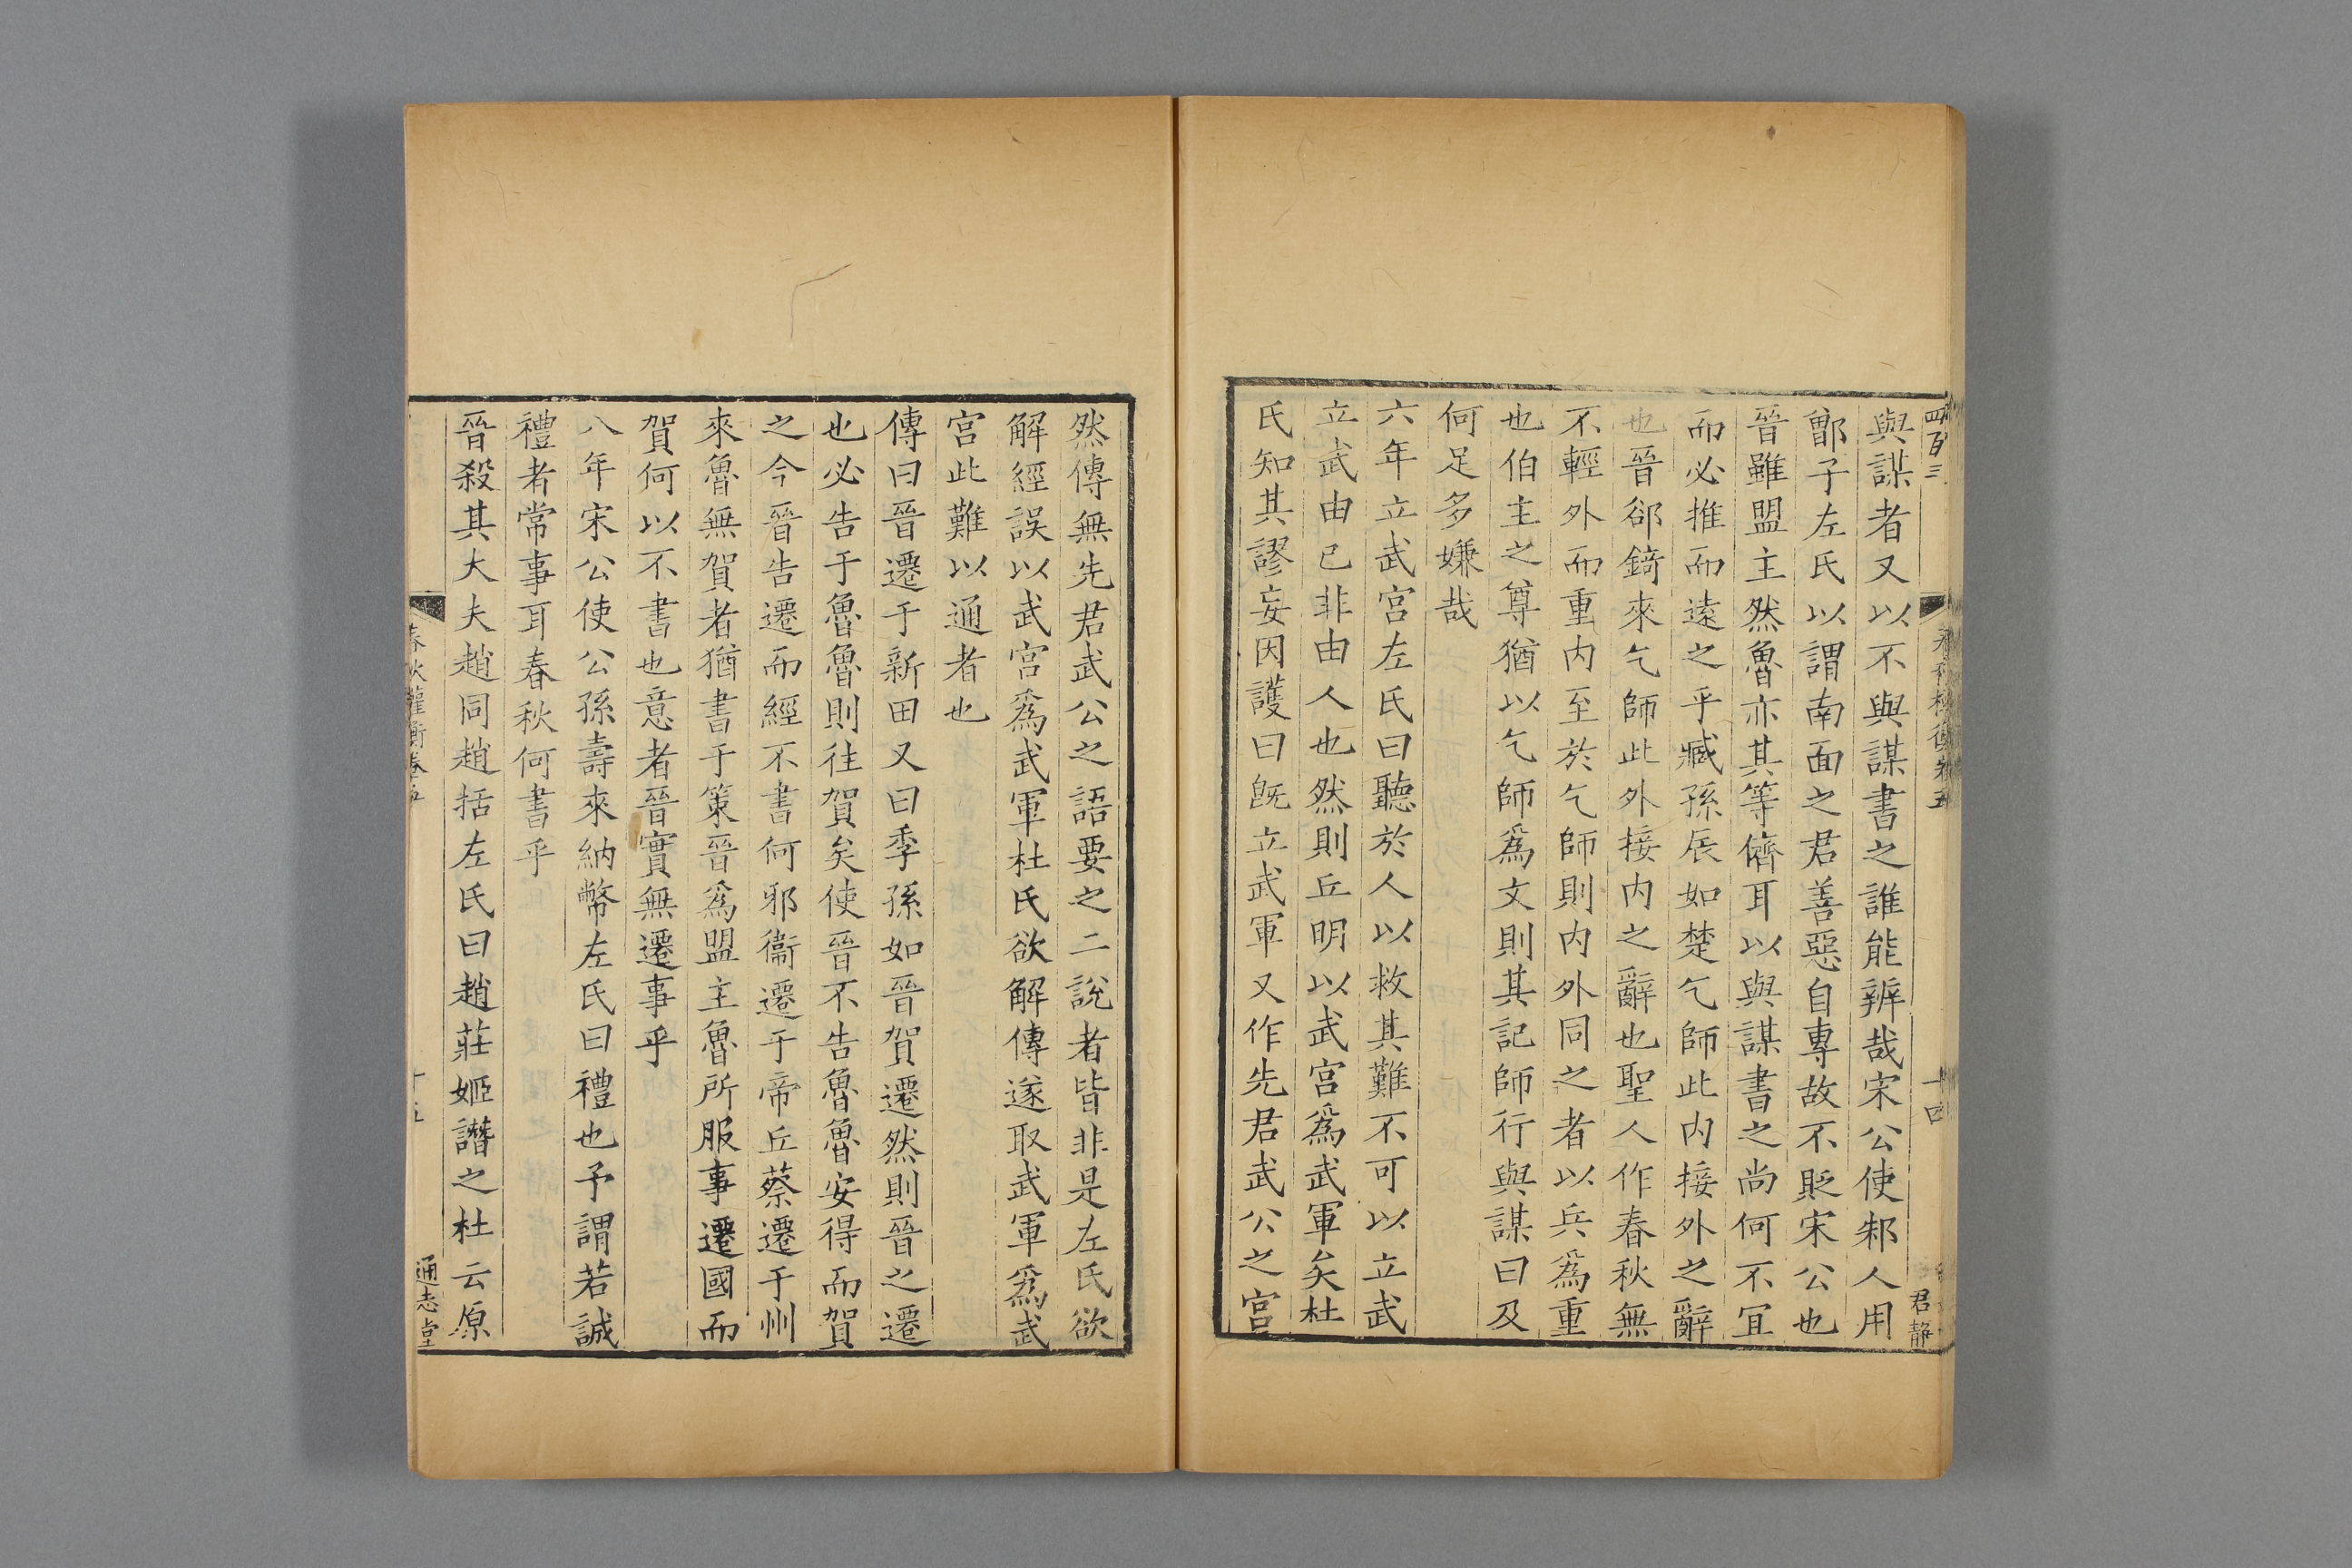 四百三
十四
君静
與謀者又以不與謀書之誰能辨哉宋公使邾人用
鄫子左氏以謂南面之君善惡自專故不貶宋公也
晉雖盟主然魯亦其等儕耳以與謀書之尚何不宜
而必推而遠之乎臧孫辰如楚乞師此内接外之辭
也晉郤錡來乞師此外接内之辭也聖人作春秋無
不輕外而重内至於乞師則内外同之者以兵爲重
也伯主之尊猶以乞師爲文則其記師行與謀曰及
何足多嫌哉
六年立武宫左氏曰聽於人以救其難不可以立武
立武由已非由人也然則丘明以武宫爲武軍矣杜
氏知其謬妄因護曰旣立武軍又作先君武公之宫
然傳無先君武公之語要之二說者皆非是左氏欲
解經誤以武宫爲武軍杜氏欲解傳遂取武軍爲武
宫此難以通者也
傳曰晉遷于新田又曰季孫如晉賀遷然則晉之遷
也必告于魯魯則往賀矣使晉不告魯魯安得而賀
之今晉告遷而經不書何邪衞遷于帝丘蔡遷于州
來魯無賀者猶書于策晉爲盟主魯所服事遷國而
賀何以不書也意者晉實無遷事乎
八年宋公使公孫壽來納幣左氏曰禮也予謂若誠
禮者常事耳春秋何書乎
晉殺其大夫趙同趙括左氏曰趙莊姬譖之杜云原
春秋權衡卷五
通志堂